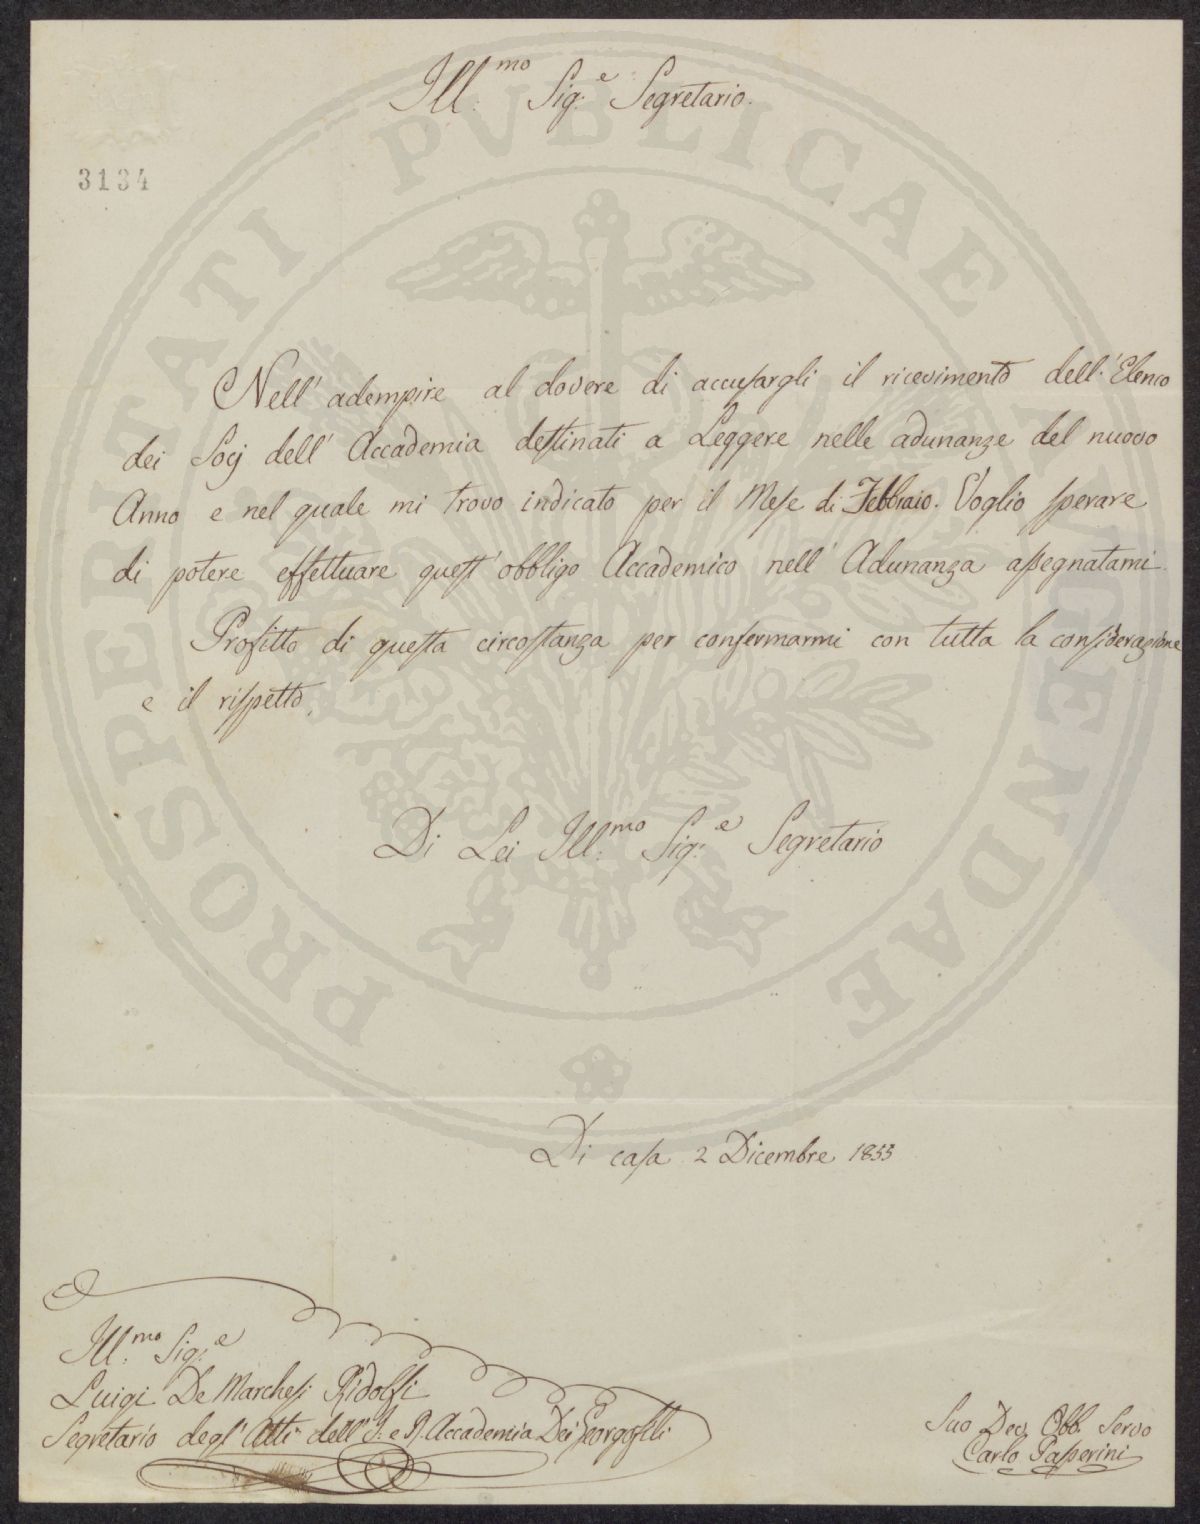 Ill.mo Sig.e Segretario.
3134
Nell' adempire al dovere di accusargli il ricevimento dell' Elenco
dei Socj dell' Accademia destinati a Leggere nelle adunanze del nuovo
Anno e nel quale mi trovo indicato per il Mese di Febbraio. Voglio sperare
di potere effettuare quest' obbligo Accademico nell' Adunanza assegnatami.
Profitto di questa circostanza per confermarmi con tutta la considerazione
e il rispetto.
Di Lei Ill.mo Sig.e Segretario
Di casa 2 Dicembre 1853
Ill.mo Sig.e
Luigi De Marchesi Ridolfi
Segretario degl' Atti dell' I. e R. Accademia Dei Georgofili
Suo Dev. Obb. Servo
Carlo Passerini
PROSPERITATI PVBLICAE AVGENDAE